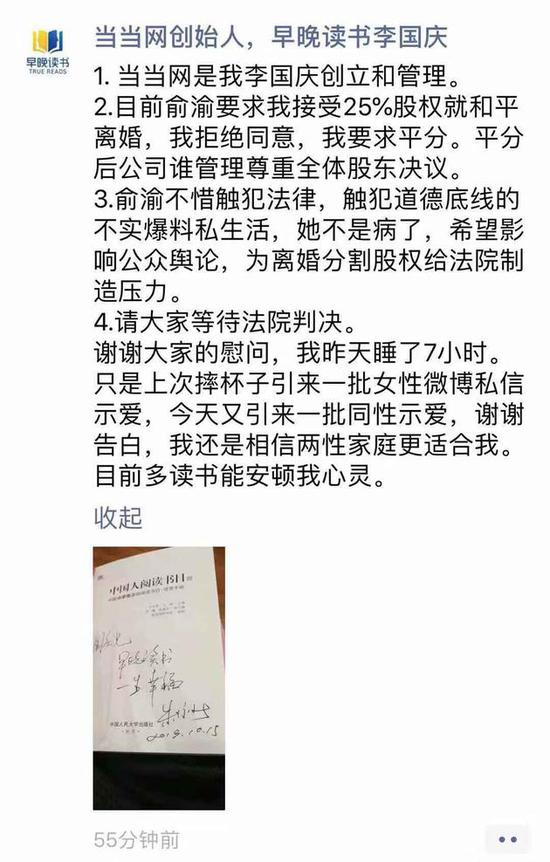 早晚读书
TRUE READS
当当网创始人，早晚读书李国庆
1. 当当网是我李国庆创立和管理。
2.目前俞渝要求我接受25%股权就和平
离婚，我拒绝同意，我要求平分。平分
后公司谁管理尊重全体股东决议。
3.俞渝不惜触犯法律，触犯道德底线的
不实爆料私生活，她不是病了，希望影
响公众舆论，为离婚分割股权给法院制
造压力。
4.请大家等待法院判决。
谢谢大家的慰问，我昨天睡了7小时。
只是上次摔杯子引来一批女性微博私信
示爱，今天又引来一批同性示爱，谢谢
告白，我还是相信两性家庭更适合我。
目前多读书能安顿我心灵。
收起
中国人阅读书目
早晚读书
一生幸福
中国人民大学出版社
2019.10.15
55分钟前